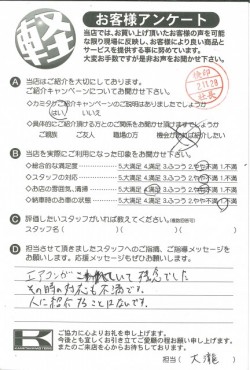 軽
お客様アンケート
当店では、お買い上げ頂いたお客様の声を可能
な限り現場に反映し、お客様により良い商品と
サービスを提供する事に努めています。
大変お手数ですが是非お声をお聞かせ下さい。
A 当店はご紹介を大切にしております。
ご紹介キャンペーンについてお聞かせ下さい。
◇カミタケご紹介キャンペーンのご説明はありましたでしょうか
はい いいえ
◇具体的にご紹介頂ける方とのご関係をお聞かせ頂けますでしょうか
ご親族 ご友人 職場の方 機会があれば紹介したい
B 当店を実際にご利用になった印象をお聞かせ下さい。
◇総合的な満足度 5.大満足 4.満足 3.ふつう 2.やや不満 1.不満
◇スタッフの対応 5.大満足 4.満足 3.ふつう 2.やや不満 1.不満
◇お店の雰囲気、清掃 5.大満足 4.満足 3.ふつう 2.やや不満 1.不満
◇納車時のお車の状態 5.大満足 4.満足 3.ふつう 2.やや不満 1.不満
C 評価したいスタッフがいれば教えてください。(複数回答可)
スタッフ名( ) ( )
D 担当させて頂きましたスタッフへのご指摘、ご指導メッセージを
お願いします。応援メッセージもぜひお願いします。
エアコンがこわれていて残念でした
その時の対応も不満です。
人に紹介することはないです。
K
ご協力に心よりお礼を申し上げます。
今後とも宜しくお引き立てご愛顧の程お願い申し上げます。
またのご来店を心からお待ちしております。
担当( 大瀧 )